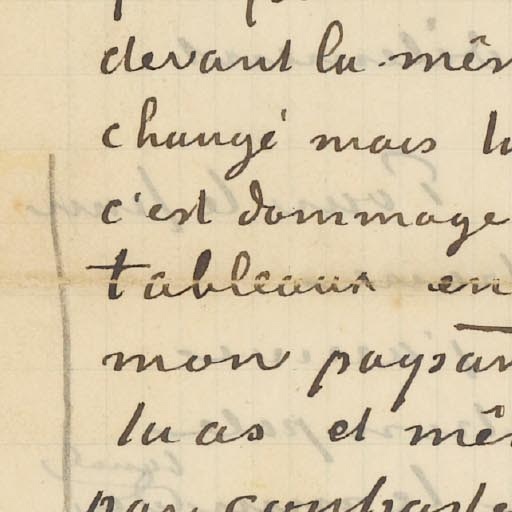 devant la mêm
changé mais la
c'est dommage
tableaux en
mon paysan
tu as et mê
par contraste